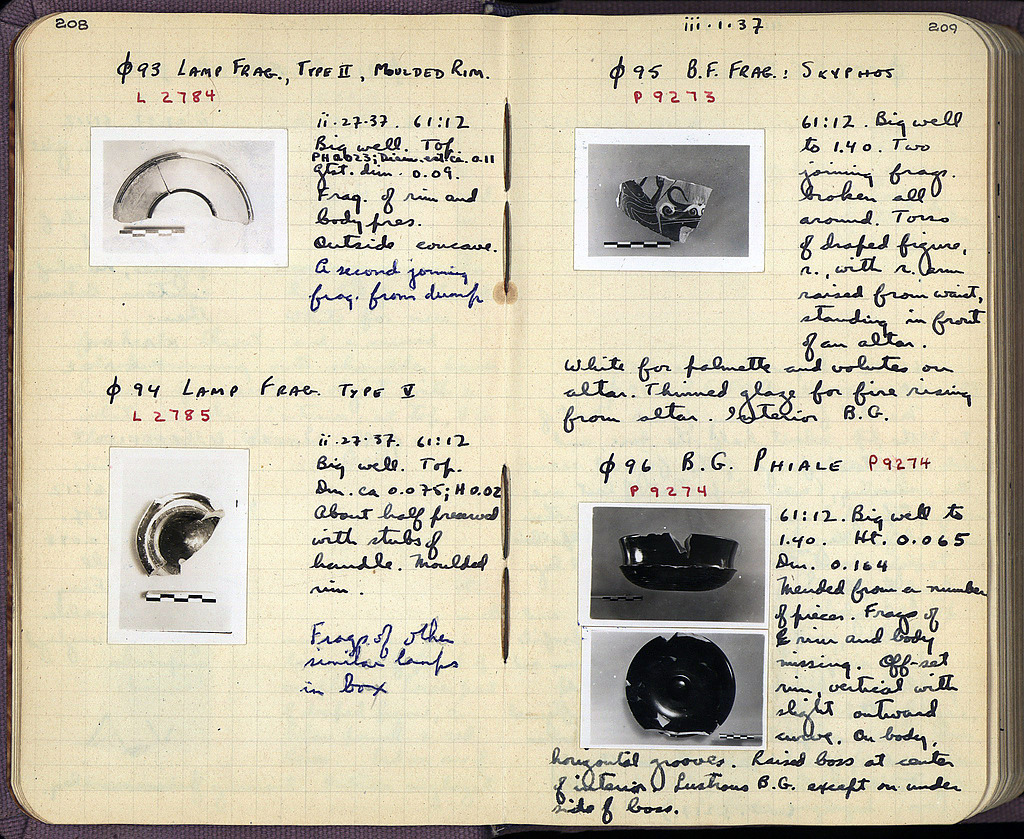 208
ϕ 93 LAMP FRAG., TYPE II, MOULDED RIM.
L 2784
ii·27·37. 61:12
Big well. Top
PH 0.023; Diam. est. ca. 0.11
Gtst. dim. 0.09.
Frag. of rim and
body pres.
Outside concave.
A second joining
frag. from dump
ϕ 94 LAMP FRAG. TYPE V
L 2785
ii·27·37. 61:12
Big well. Top.
Dm. ca 0.075; H 0.02
About half preserved
with stubs of
handle. Moulded
rim.
Frags of other
similar lamps
in box
iii·1·37
209
ϕ 95 B.F. FRAG: SKYPHOS
P 9273
61:12. Big well
to 1.40. Two
joining frags.
broken all
around. Torso
of draped figure,
r., with r. arm
raised from waist,
standing in front
of an altar.
White for palmette and volutes on
altar. Thinned glaze for fire rising
from altar. Interior B.G.
ϕ 96 B.G. PHIALE P 9274
P 9274
61:12. Big well to
1.40. Ht. 0.065
Dm. 0.164
Mended from a number
of pieces. Frags of
rim and body
missing. Off-set
rim, vertical with
slight outward
curve. On body,
horizontal grooves. Raised boss at center
of interior. Lustrous B.G. except on under
side of boss.